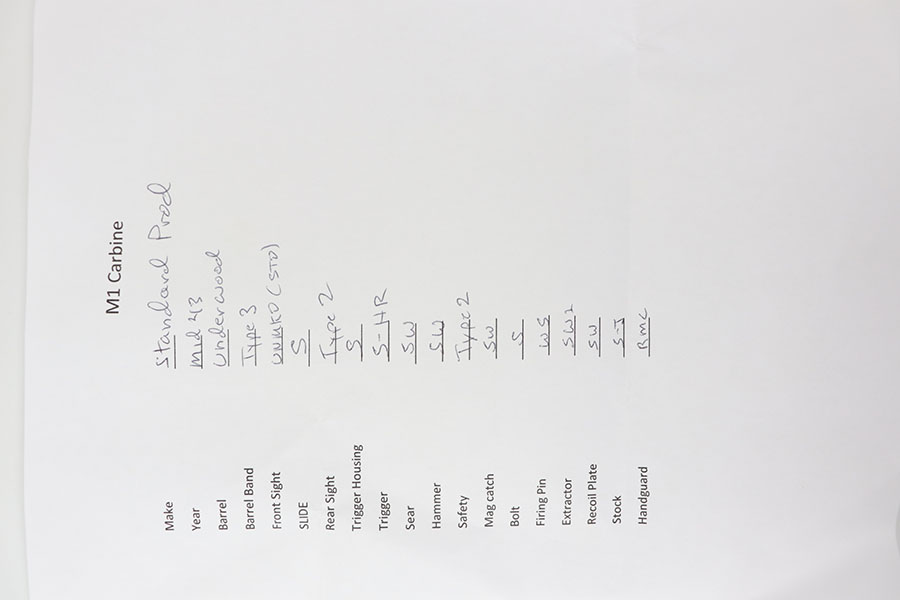 M1 Carbine
Make Standard Prod
Year Mid 43
Barrel Underwood
Barrel Band Type 3
Front Sight UNMKD (STD)
SLIDE S
Rear Sight Type 2
Trigger Housing S
Trigger S-HR
Sear SW
Hammer SW
Safety Type 2
Mag catch SW
Bolt S
Firing Pin WS
Extractor
Recoil Plate SW
Stock S-J
Handguard RMC